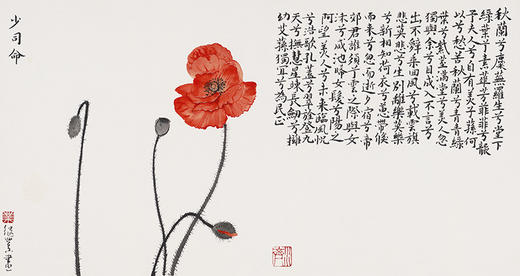 秋蘭兮麋蕪羅生兮堂下
綠葉兮素華芳菲菲兮襲
予夫人兮自有美子蓀何
以兮愁苦秋蘭兮青青綠
葉兮紫莖滿堂兮美人忽
獨與余兮目成入不言兮
出不辭乘回風兮載雲旗
悲莫悲兮生別離樂莫樂
兮新相知荷衣兮蕙帶倏
而來兮忽而逝夕宿兮帝
郊君誰須兮雲之際與女
沐兮咸池晞女髮兮陽之
阿望美人兮未來臨風怳
兮浩歌孔蓋兮翠旍登九
天兮撫彗星竦長劍兮擁
幼艾蓀獨宜兮為民正
少司命